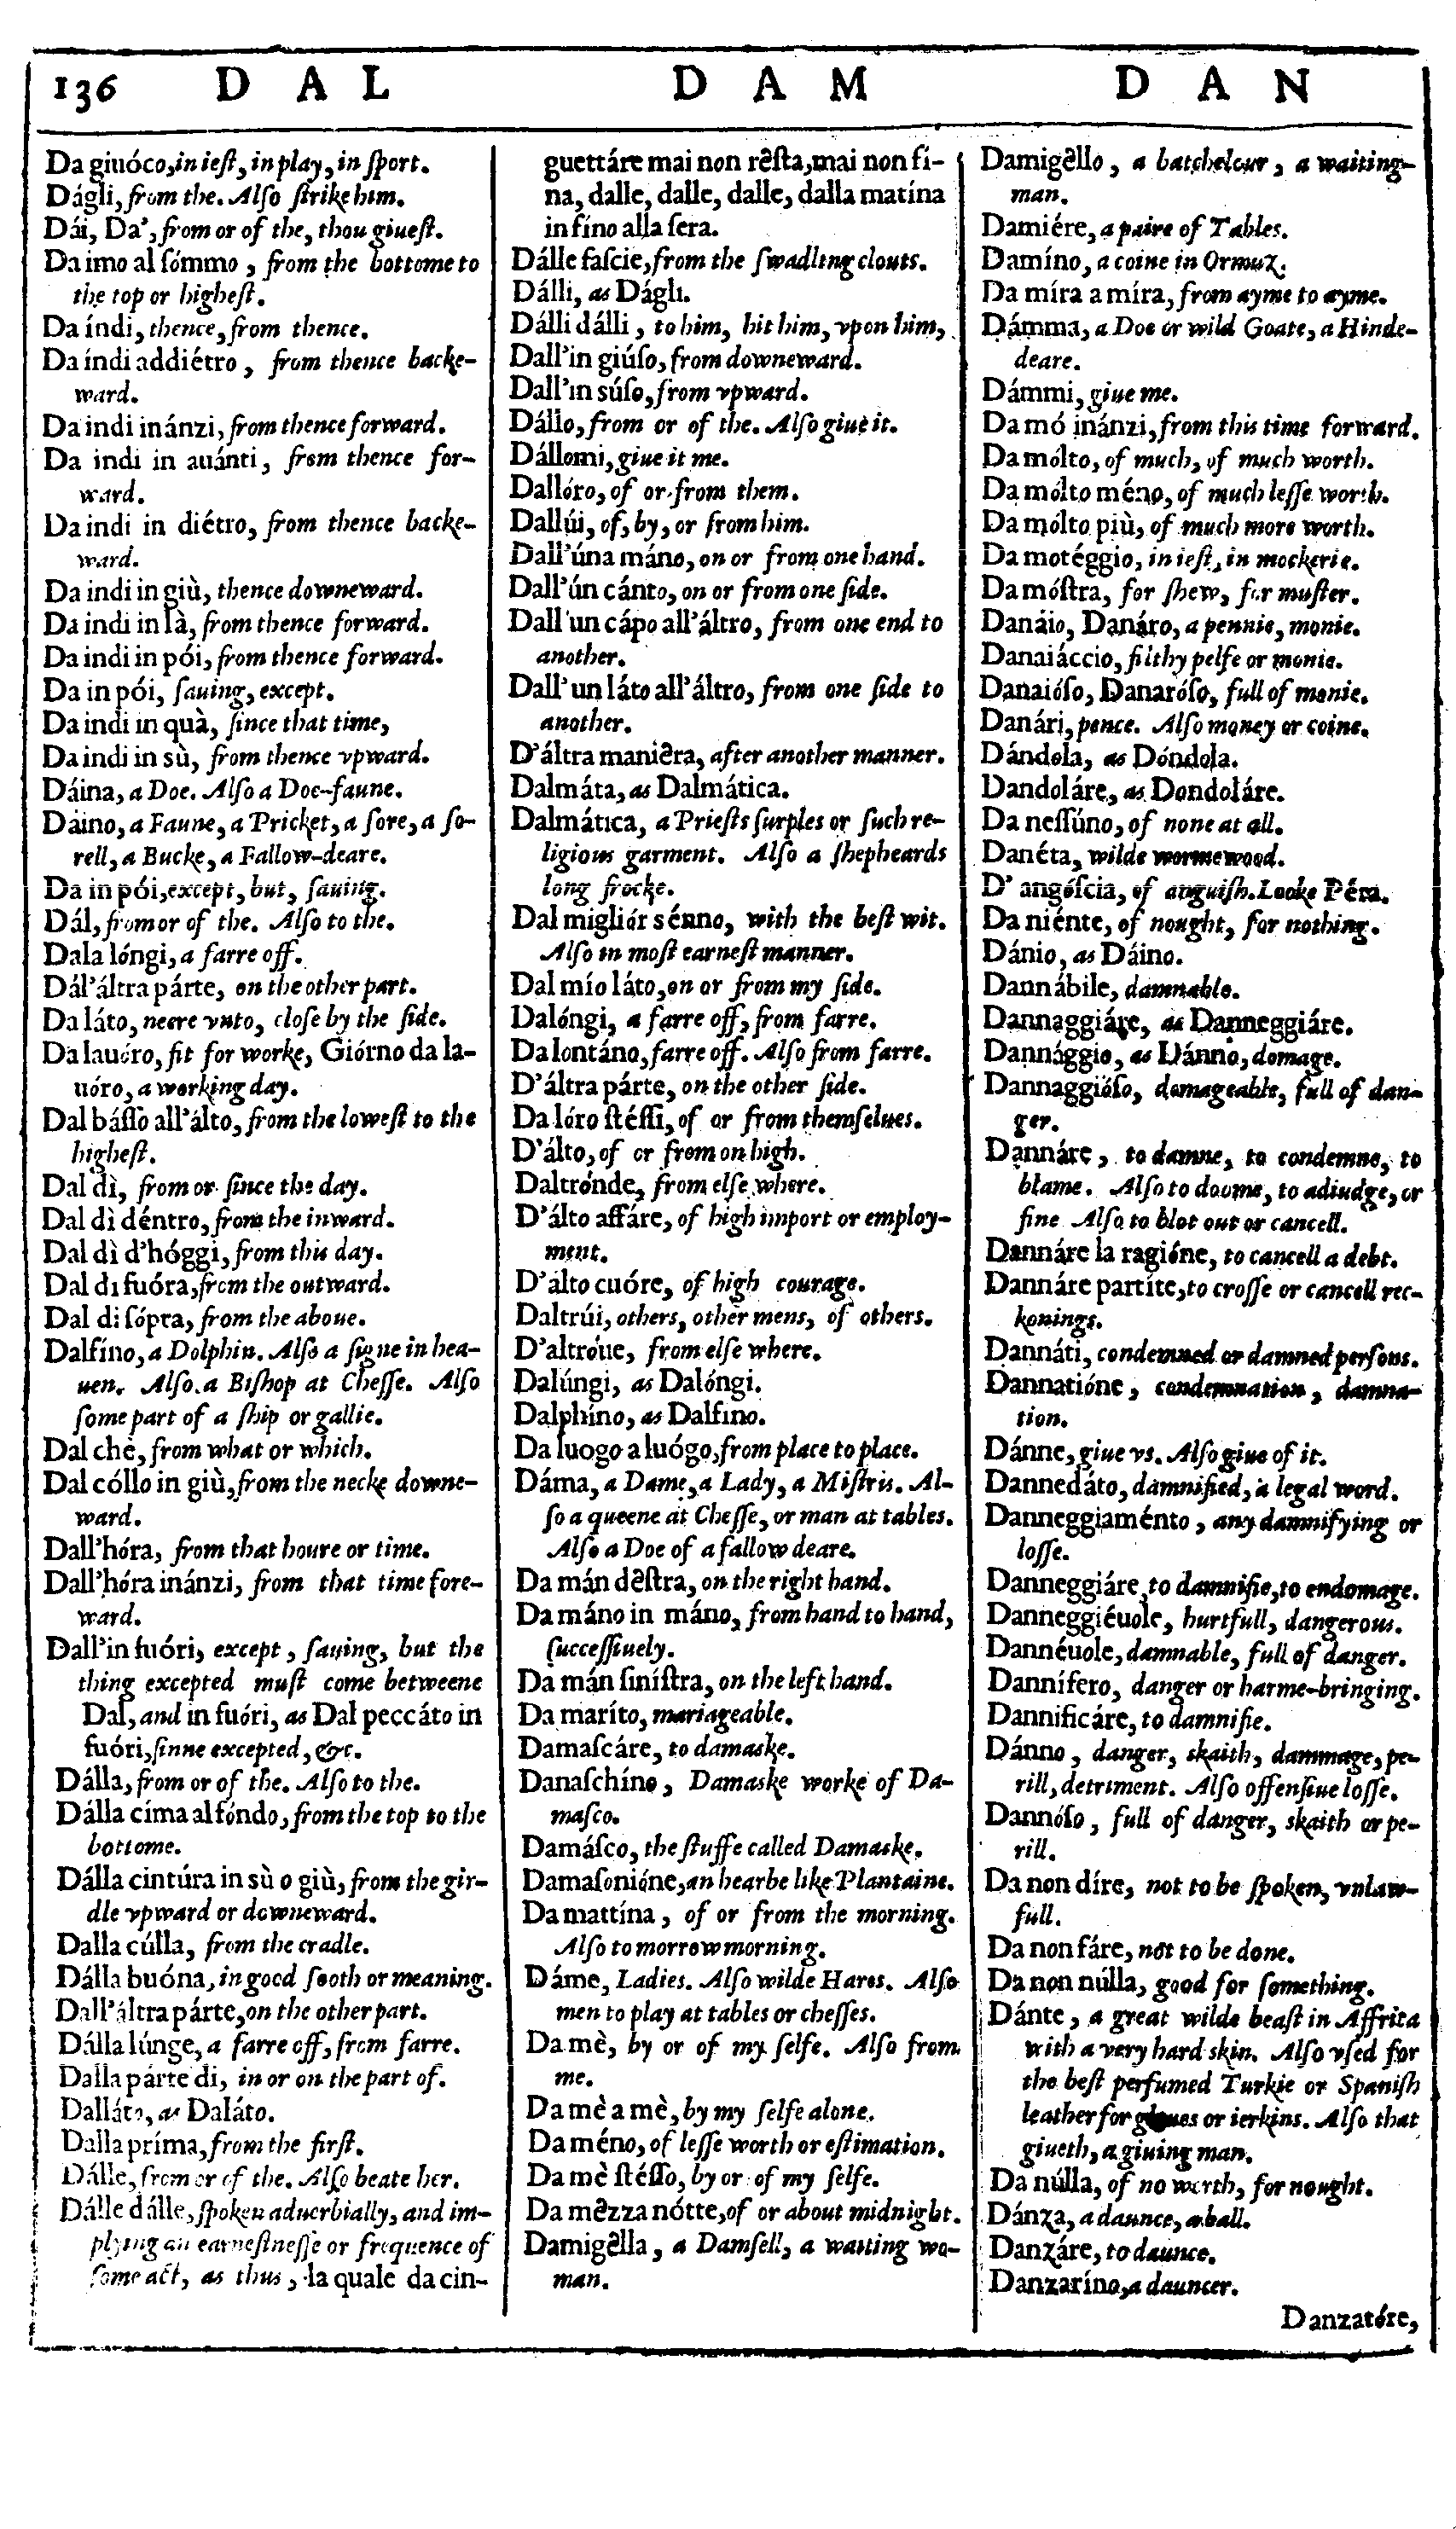 136 DAL DAM DAN
Da giuóco, in iest, in play, in sport.
Dágli, from the. Also strike him.
Dái, Da', from or of the, thou giuest.
Da imo al sómmo, from the bottome to
the top or highest.
Da índi, thence, from thence.
Da índi addiétro, from thence backe-
ward.
Da indi inánzi, from thence forward.
Da indi in auánti, from thence for-
ward.
Da indi in diétro, from thence backe-
ward.
Da indi in giù, thence downeward.
Da indi in là, from thence forward.
Da indi in pói, from thence forward.
Da in pói, sauing, except.
Da indi in quà, since that time,
Da indi in sù, from thence vpward.
Dáina, a Doe. Also a Doe-faune.
Dáino, a Faune, a Pricket, a sore, a so-
rell, a Bucke, a Fallow-deare.
Da in pói, except, but, sauing.
Dál, from or of the. Also to the.
Dala lóngi, a farre off.
Dál'áltra párte, on the other part.
Da láto, neere vnto, close by the side.
Da lauóro, fit for worke, Giórno da la-
uóro, a working day.
Dal básso all'álto, from the lowest to the
highest.
Dal dì, from or since the day.
Dal dì déntro, from the inward.
Dal dì d'hóggi, from this day.
Dal di fuóra, from the outward.
Dal di sópra, from the aboue.
Dalfíno, a Dolphin. Also a signe in hea-
uen. Also a Bishop at Chesse. Also
some part of a ship or gallie.
Dal chè, from what or which.
Dal cóllo in giù, from the necke downe-
ward.
Dall'hóra, from that houre or time.
Dall'hóra inánzi, from that time fore-
ward.
Dall'in fuóri, except, sauing, but the
thing excepted must come betweene
Dal, and in fuóri, as Dal peccáto in
fuóri, sinne excepted, &c.
Dálla, from or of the. Also to the.
Dálla címa al fóndo, from the top to the
bottome.
Dálla cintúra in sù o giù, from the gir-
dle vpward or downeward.
Dalla cúlla, from the cradle.
Dálla buóna, in good sooth or meaning.
Dall'áltra párte, on the other part.
Dálla lúnge, a farre off, from farre.
Dalla párte di, in or on the part of.
Dalláto, as Daláto.
Dalla príma, from the first.
Dálle, from or of the. Also beate her.
Dálle dálle, spoken aduerbially, and im-
plying an earnestnesse or frequence of
some act, as thus, la quale da cin-
guettáre mai non rêsta, mai non fí-
na, dalle, dalle, dalle, dalla matína
in fíno alla sera.
Dálle fascie, from the swadling clouts.
Dálli, as Dágli.
Dálli dálli, to him, hit him, vpon him,
Dall'in giúso, from downeward.
Dall'in súso, from vpward.
Dállo, from or of the. Also giue it.
Dállomi, giue it me.
Dallóro, of or from them.
Dallúi, of, by, or from him.
Dall'úna máno, on or from one hand.
Dall'ún cánto, on or from one side.
Dall'un cápo all'áltro, from one end to
another.
Dall'un láto all'áltro, from one side to
another.
D'áltra maniêra, after another manner.
Dalmáta, as Dalmática.
Dalmática, a Priests surples or such re-
ligious garment. Also a shepheards
long frocke.
Dal migliór sénno, with the best wit.
Also in most earnest manner.
Dal mío láto, on or from my side.
Dalóngi, a farre off, from farre.
Da lontáno, farre off. Also from farre.
D'áltra párte, on the other side.
Da lóro stéssi, of or from themselues.
D'álto, of or from on high.
Daltrónde, from else where.
D'álto affáre, of high import or employ-
ment.
D'álto cuóre, of high courage.
Daltrúi, others, other mens, of others.
D'altróue, from else where.
Dalúngi, as Dalóngi.
Dalphíno, as Dalfino.
Da luogo a luógo, from place to place.
Dáma, a Dame, a Lady, a Mistris. Al-
so a queene at Chesse, or man at tables.
Also a Doe of a fallow deare.
Da mán dêstra, on the right hand.
Da máno in máno, from hand to hand,
successiuely.
Da mán sinístra, on the left hand.
Da maríto, mariageable.
Damascáre, to damaske.
Danaschíno, Damaske worke of Da-
masco.
Damásco, the stuffe called Damaske.
Damasonióne, an hearbe like Plantaine.
Da mattína, of or from the morning.
Also to morrow morning.
Dáme, Ladies. Also wilde Hares. Also
men to play at tables or chesses.
Da mè, by or of my selfe. Also from
me.
Da mè a mè, by my selfe alone.
Da méno, of lesse worth or estimation.
Da mè stésso, by or of my selfe.
Da mêzza nótte, of or about midnight.
Damigêlla, a Damsell, a waiting wo-
man.
Damigêllo, a batchelour, a waiting-
man.
Damiére, a paire of Tables.
Damíno, a coine in Ormuz.
Da míra a míra, from ayme to ayme.
Dámma, a Doe or wild Goate, a Hinde-
deare.
Dámmi, giue me.
Da mó inánzi, from this time forward.
Da mólto, of much, of much worth.
Da mólto méno, of much lesse worth.
Da mólto più, of much more worth.
Da motéggio, in iest, in mockerie.
Da móstra, for shew, for muster.
Danáio, Danáro, a pennie, monie.
Danaiáccio, filthy pelfe or monie.
Danaióso, Danaróso, full of monie.
Danári, pence. Also money or coine.
Dándola, as Dóndola.
Dandoláre, as Dondoláre.
Da nessúno, of none at all.
Danéta, wilde wormewood.
D' angóscia, of anguish. Looke Péra.
Da niénte, of nought, for nothing.
Dánio, as Dáino.
Dannábile, damnable.
Dannaggiáre, as Danneggiáre.
Dannággio, as Dánno, domage.
Dannaggióso, domageable, full of dan-
ger.
Dannáre, to damne, to condemne, to
blame. Also to doome, to adiudge, or
fine Also to blot out or cancell.
Dannáre la ragióne, to cancell a debt.
Dannáre partíte, to crosse or cancell rec-
konings.
Dannáti, condemned or damned persons.
Dannatióne, condemnation, damna-
tion.
Dánne, giue vs. Also giue of it.
Dannedáto, damnified, a legal word.
Danneggiaménto, any damnifying or
losse.
Danneggiáre, to damnifie, to endomage.
Danneggiéuole, hurtfull, dangerous.
Dannéuole, damnable, full of danger.
Dannífero, danger or harme-bringing.
Dannificáre, to damnifie.
Dánno, danger, skaith, dammage, pe-
rill, detriment. Also offensiue losse.
Dannóso, full of danger, skaith or pe-
rill.
Da non díre, not to be spoken, vnlaw-
full.
Da non fáre, not to be done.
Da non núlla, good for something.
Dánte, a great wilde beast in Affrica
with a very hard skin. Also vsed for
the best perfumed Turkie or Spanish
leather for gloues or ierkins. Also that
giueth, a giuing man.
Da núlla, of no worth, for nought.
Dánza, a daunce, a ball.
Danzáre, to daunce.
Danzaríno, a dauncer.
Danzatóre,